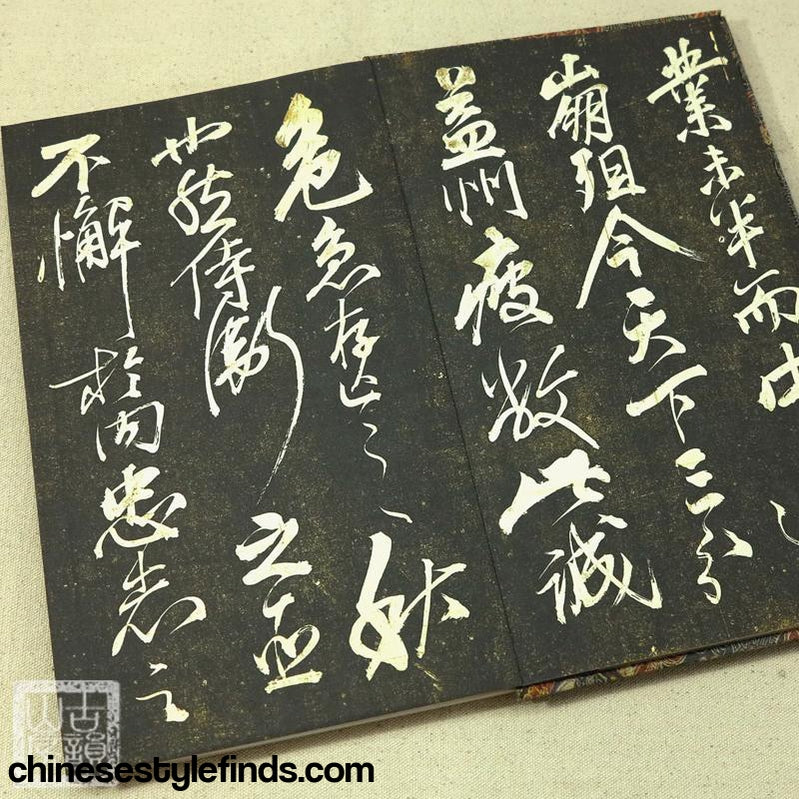 業未半而中
崩殂今天下三分
益州疲敝此誠
危急存亡之秋
也然侍衛之臣
不懈於内忠志之
古韻
山房
chinesestylefinds.com